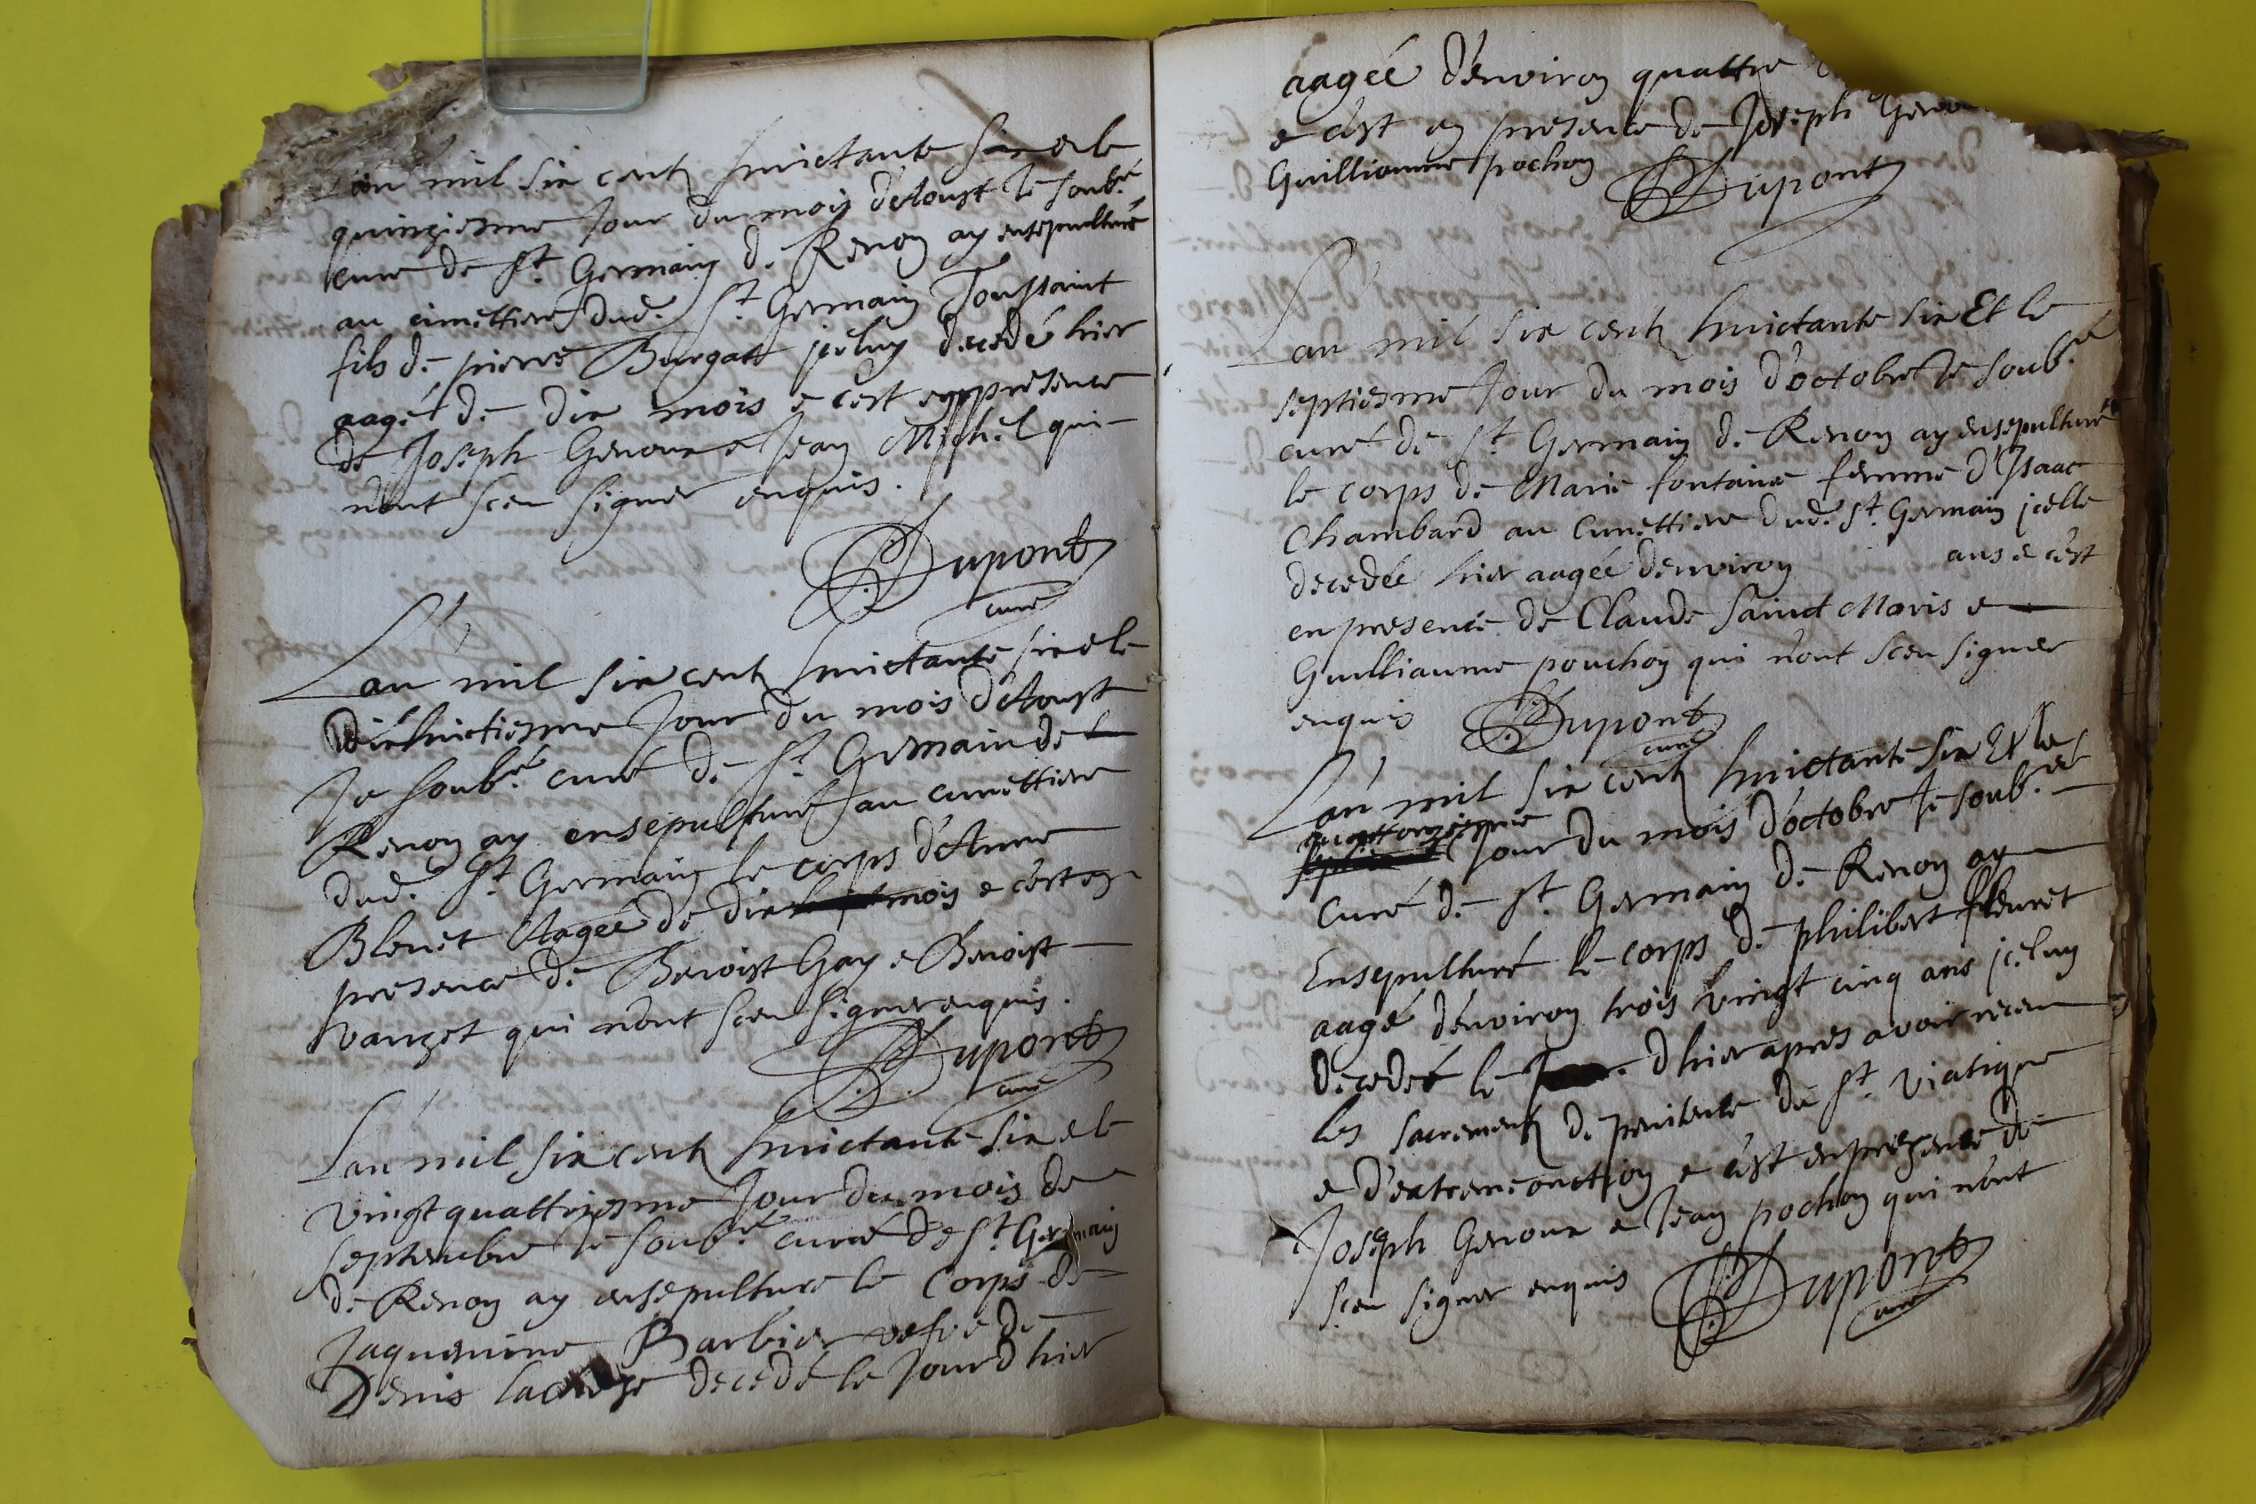 Lan mil six centz huictante six e le
quinziesme Jour du mois d'Aoust Je soub.né
curé de st Germain de Renon ay ensepulturé
au cimettiere dud. st Germain Toussaint
fils de pierre Burgatt iceluy decedé hier
aagé de dix mois e c'est en presence
de Joseph Genoux e Jean Michel qui
n'ont sceu signer enquis.
Dupont
curé
Lan mil six centz huictante six e le
dixhuictiesme Jour du mois d'Aoust
Je soub.né curé de st Germain de
Renon ay ensepulturé au cimettiere
dud. st Germain le corps d'Anne
Blouet Aagée de dix mois e c'est en
presence de Benoist Gay e Benoist
vauzet qui n'ont sceu signer enquis.
Dupont
curé
Lan mil six centz huictante six e le
vingt quattriesme Jour du mois de
septembre Je soub.né curé de st Germain
de Renon ay ensepulturé le corps de
Jaquemine Barbier vefve de
Denis decedé le Jourd hier
aagée d'environ quattre
e c'est en presence de Joseph Genoux
Guilliaume pochon Dupont
Lan mil six centz huictante six Et le
septiesme Jour du mois d'octobre Je soub.né
curé de st Germain de Renon ay ensepulturé
le corps de Marie fontaine femme d'Isaac
Chambard au Cimettiere dud. st Germain jcelle
decedée hier aagée d'environ ans e c'est
en presence de Claude Sainct Moris e
Guilliaume pouchon qui n'ont sceu signer
enquis Dupont
curé
Lan mil six centz huictante six Et le
quattorziesme Jour du mois d'octobre Je soub.né
Curé de st Germain de Renon ay
Ensepulturé le corps de philibert fleuret
aagé d'environ trois vingt cinq ans jceluy
decedet le d hier apres avoir receu
les sacrementz de penitence du st viatique
e d'extremeonction e c'est en prezence de
Joseph Genoux e Jean pochon qui n'ont
sceu signer enquis Dupont
curé